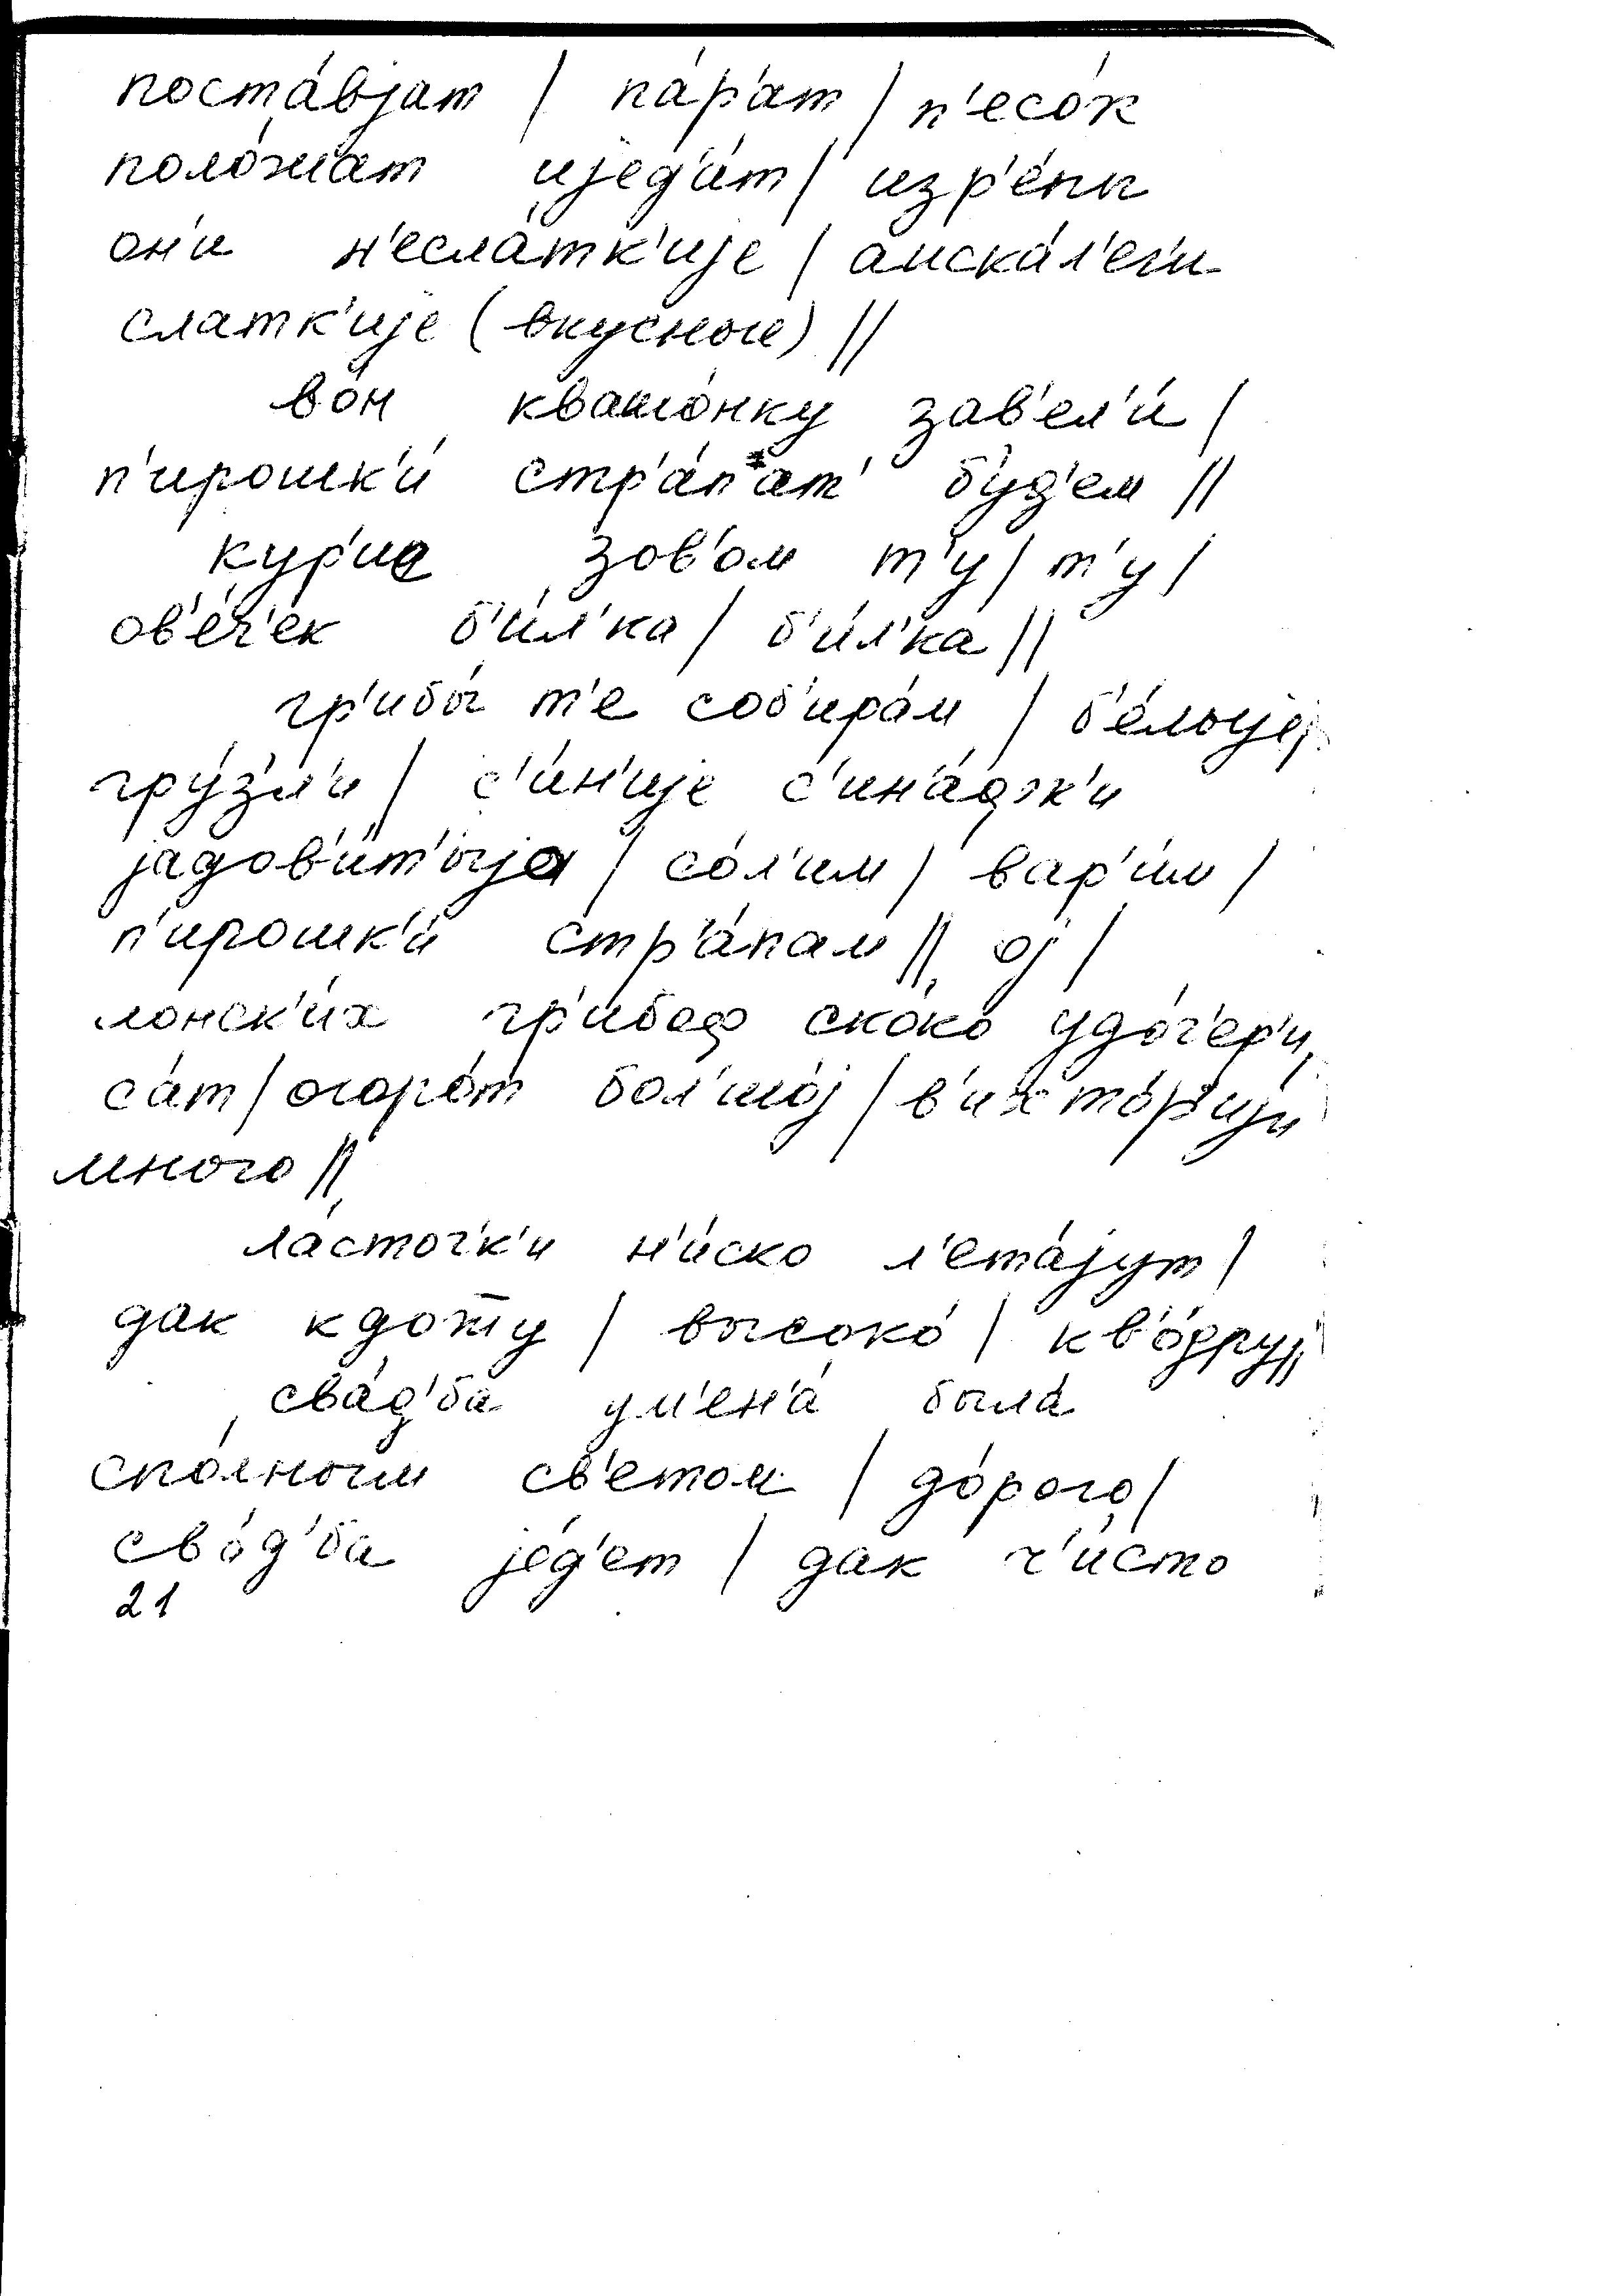 поста́вjат / па́р'ат / п'есо́к
поло́жат иjед'а́т / изр'е́пы
он'и н'есла́тк'иjе / аиска́л'ег'и
слатк'иjе (вкусные) //
во́н квашо́нку зав'ел'и́ /
п'ирошк'и́ стр'а́п'ат' бу́д'ем //
кур'иц зов'о́м т'у / т'у /
ов'е́ч'ек б'и́л'ка / б'и́л'ка //
гр'ибы́ т'е соб'ира́м / б'е́лыjе /
гру́зл'и / с'и́н'иjе с'ин'а́фк'и
jадов'и́т'ыjа / со́л'им / вар'и́м /
п'ирошк'и́ стр'а́пам // оj /
лонск'и́х гр'ибоф ско́ко удо́ч'ер'и,
са́т / огоро́т бол'шо́j / в'икто́р'иjи
много //
ла́сточ'к'и н'и́ско л'ета́jут /
дак к дожжу / высоко́ / кв'о́дру //
сва́д'ба ум'ен'а́ была́
спо́лным св'етом / до́рого /
сва́д'ба jе́д'ет / дак ч'и́сто
21